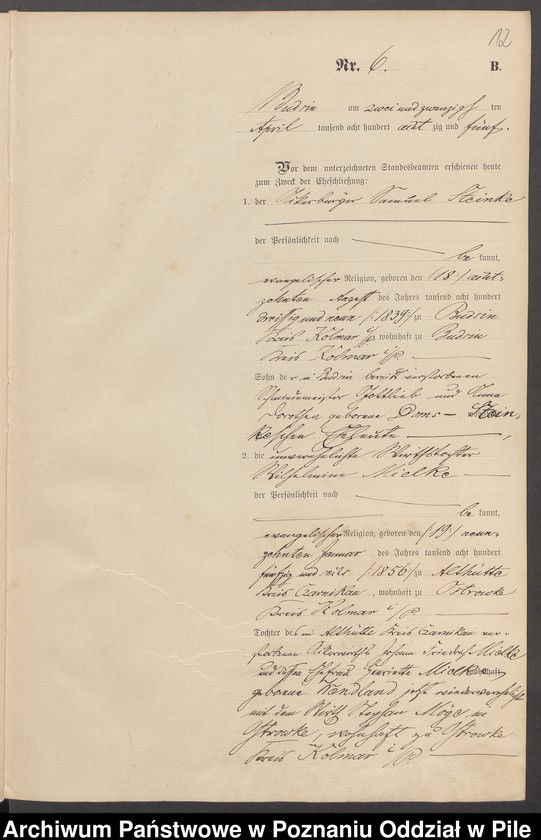 12
Nr. 6. B.
Budzin am zwei und zwanzigsten
April tausend acht hundert achtzig und fünf.
Vor dem unterzeichneten Standesbeamten erschienen heute
zum Zweck der Eheschließung:
1. der Ackerbürger Samuel Steinke
der Persönlichkeit nach
bekannt,
evangelischer Religion, geboren den /:18:/ acht-
zehnten August des Jahres tausend acht hundert
dreißig und neun /:1839:/ zu Budzin
Kreis Kolmar i/P., wohnhaft zu Budzin
Kreis Kolmar i/P.
Sohn der in Budzin bereits verstorbenen
Schneidermeister Gottlieb und Anna
Dorothea geborene Doms - Stein-
keschen Eheleute,
2. die unverehelichte Wirthstochter
Wilhelmine Mielke
der Persönlichkeit nach
bekannt,
evangelischer Religion, geboren den /:19:/ neun-
zehnten Januar des Jahres tausend acht hundert
fünfzig und sechs /:1856:/ zu Althütte
Kreis Czarnikau, wohnhaft zu Ostrowke
Kreis Kolmar i/P.
Tochter des in Althütte Kreis Czarnikau ver-
storbenen Ackerwirths Johann Friedrich Mielke
und dessen Ehefrau Henriette Mielke wohnhaft
geborene Wendland jetzt wiederverehelicht
mit dem Wirth Stephan Möge in
Ostrowke, wohnhaft zu Ostrowke
Kreis Kolmar i/P.
Archiwum Państwowe w Poznaniu Oddział w Pile